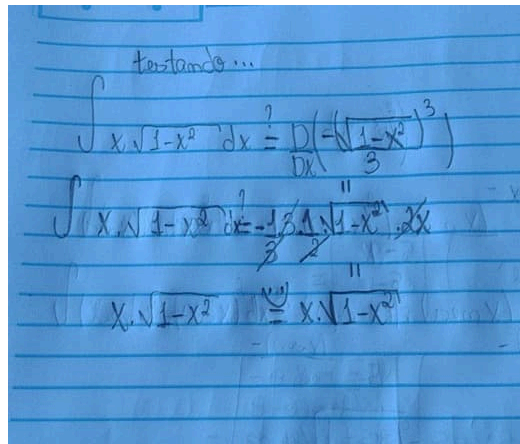 testando...
∫ x.√1-x² dx ≟ D/Dx (-(√1-x²)³/3)
||
∫ x.√1-x² dx ≟ -1/3.3.1/2.√1-x².2x
||
x.√1-x² = x.√1-x²